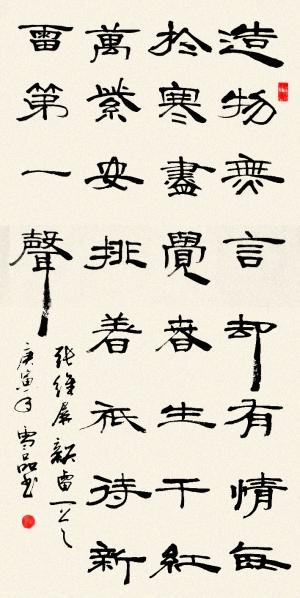 造物無言却有情每
於寒盡覺春生千紅
萬紫安排着祇待新
雷第一聲
張維屏新雷
庚寅年